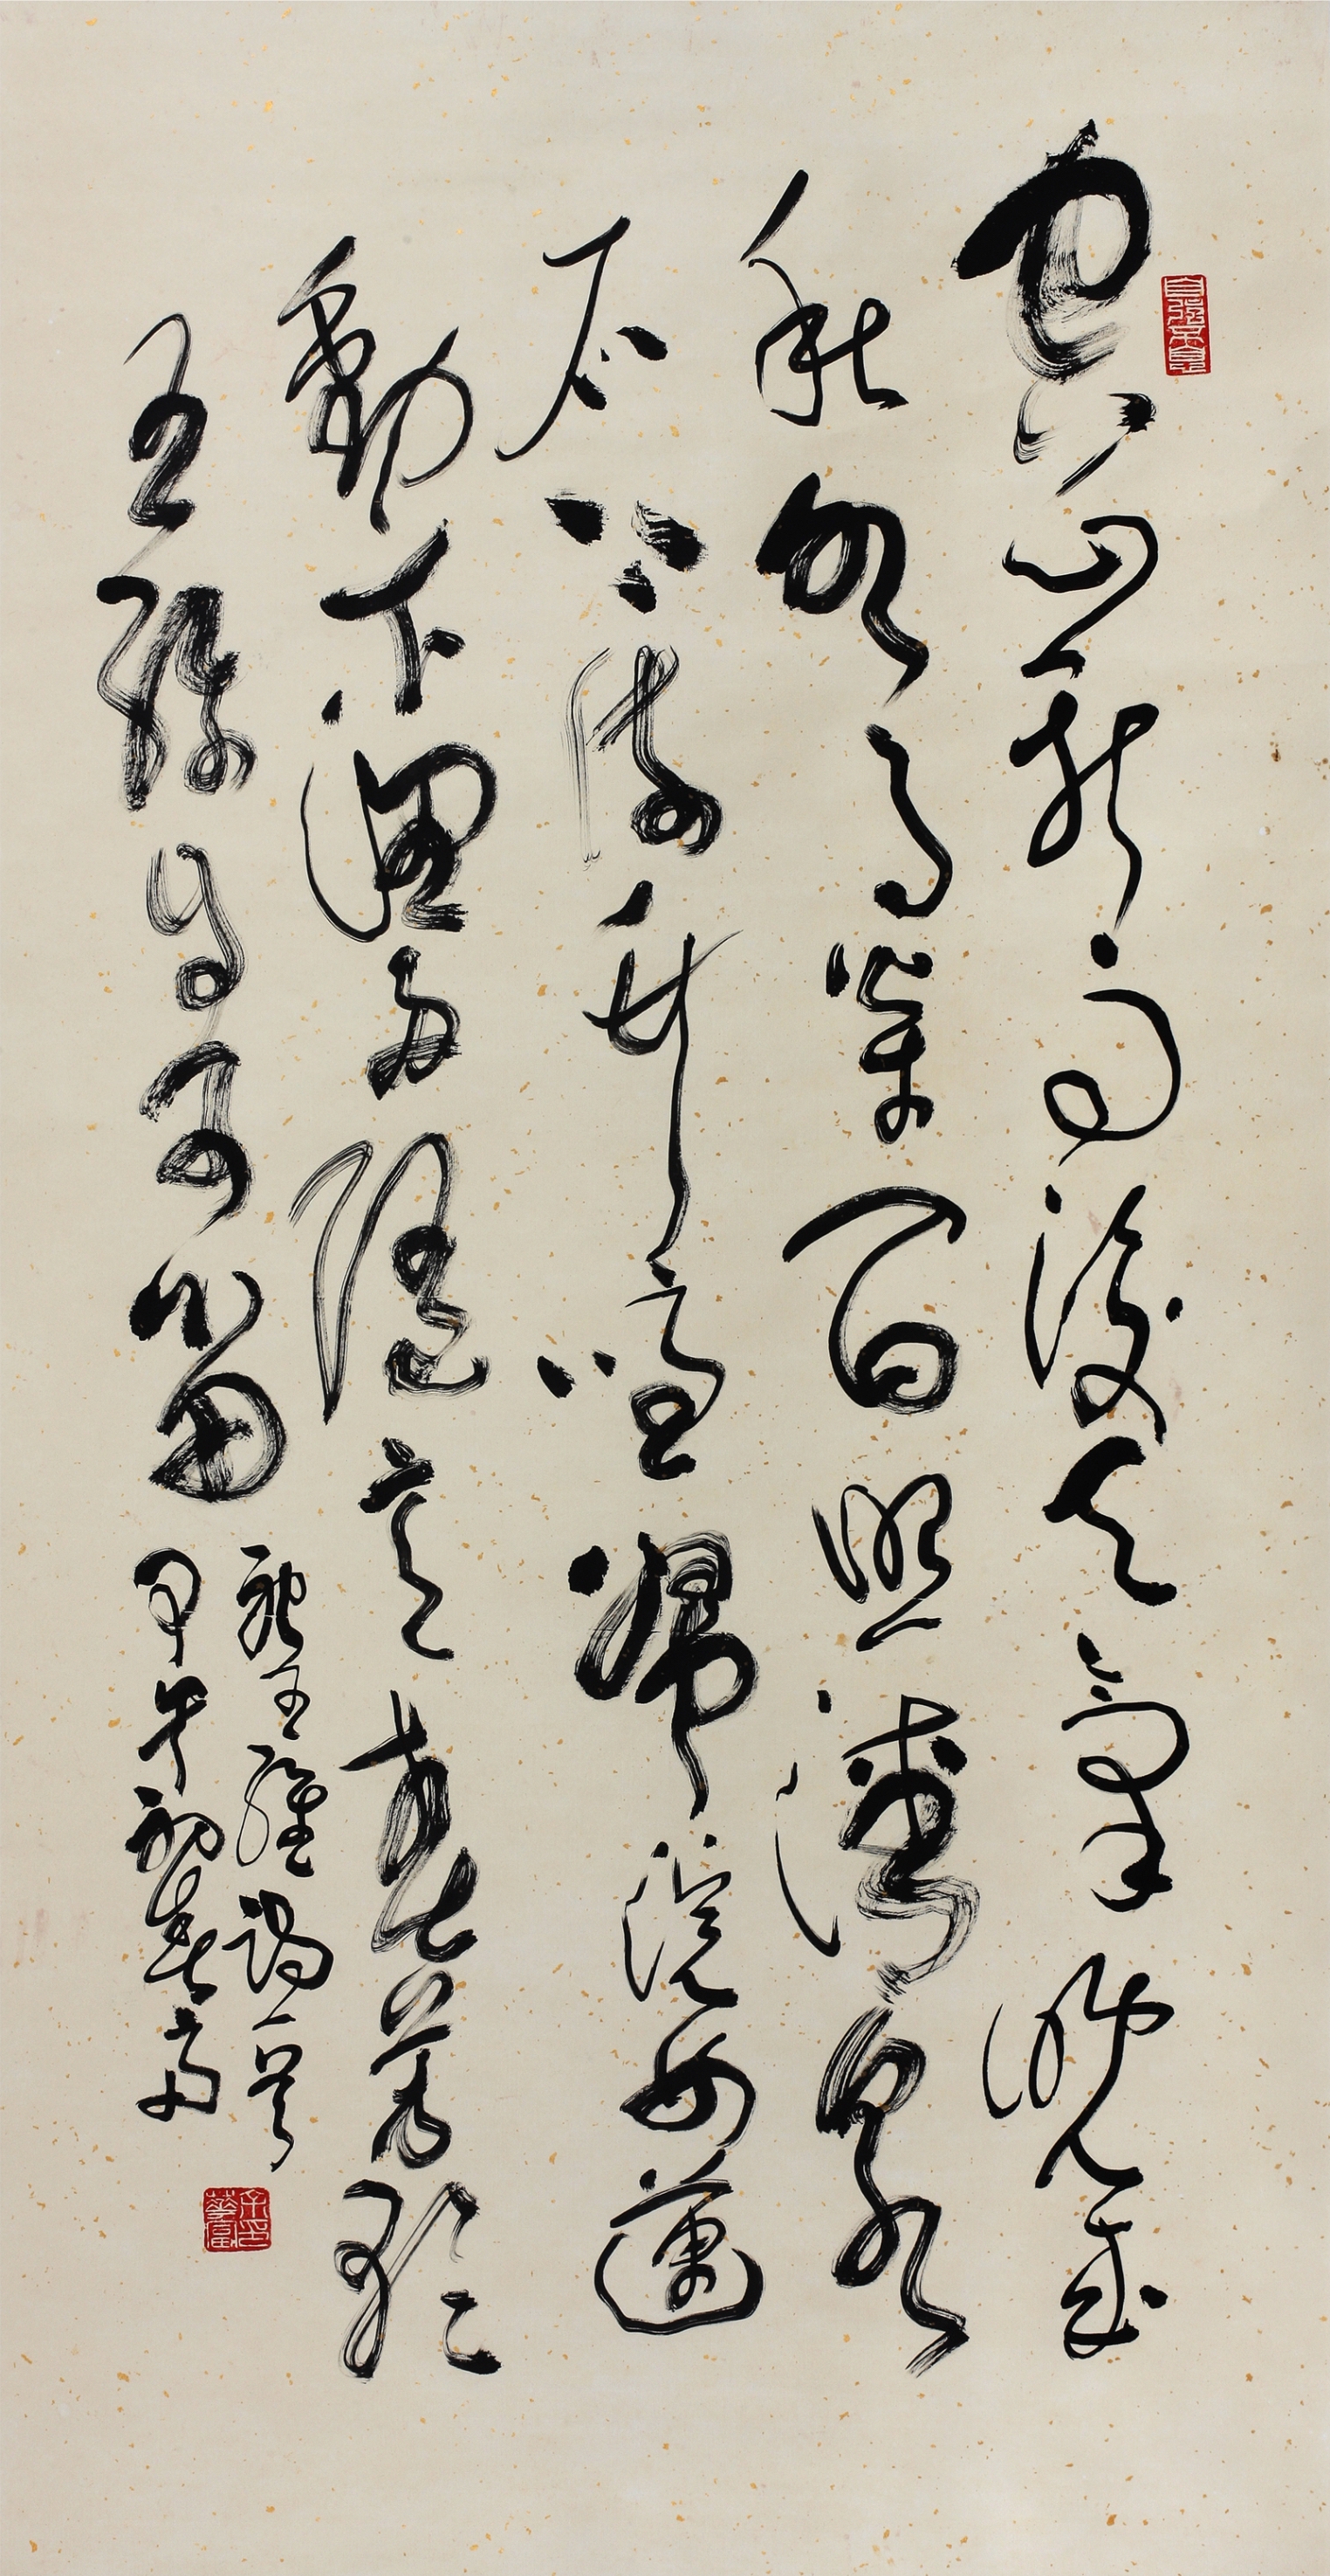 自強不息
空山新雨後天氣晚來
秋明月松間照清泉
石上流竹喧歸浣女蓮
動下漁舟隨意春芳歇
王孫自可留
錄王維詩一首
甲午初春